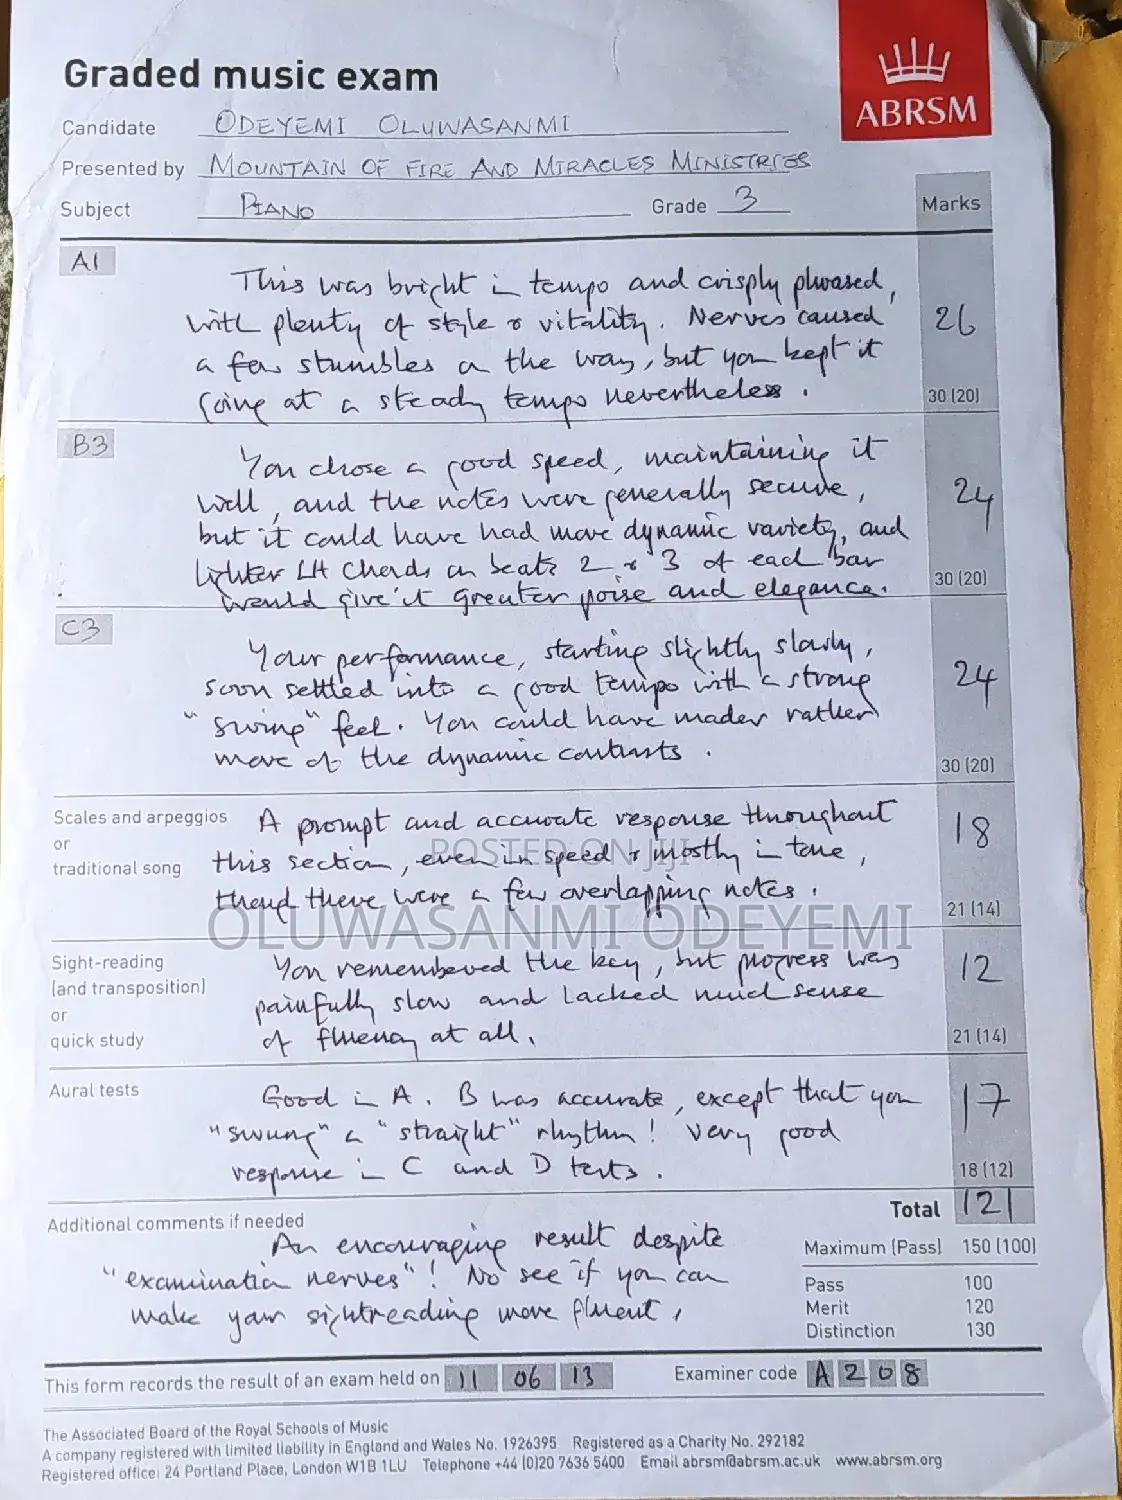 Graded music exam
ABRSM
Candidate ODEYEMI OLUWASANMI
Presented by MOUNTAIN OF FIRE AND MIRACLES MINISTRIES
Subject PIANO Grade 3 Marks
A1
This was bright in tempo and crisply phrased,
with plenty of style & vitality. Nerves caused
a few stumbles on the way, but you kept it
going at a steady tempo nevertheless.
26
30 (20)
B3
You chose a good speed, maintaining it
well, and the notes were generally secure,
but it could have had more dynamic variety, and
lighter LH chords on beats 2 & 3 of each bar
would give it greater poise and elegance.
24
30 (20)
C3
Your performance, starting slightly slowly,
soon settled into a good tempo with a strong
"swing" feel. You could have made rather
more of the dynamic contrasts.
24
30 (20)
Scales and arpeggios
or
traditional song
A prompt and accurate response throughout
this section, even in speed & mostly in tone,
though there were a few overlapping notes.
18
21 (14)
POSTED ON JIJI
OLUWASANMI ODEYEMI
Sight-reading
(and transposition)
or
quick study
You remembered the key, but progress was
painfully slow and lacked much sense
of fluency at all.
12
21 (14)
Aural tests
Good in A. B was accurate, except that you
"swung" a "straight" rhythm! Very good
response in C and D tests.
17
18 (12)
Total 121
Additional comments if needed
An encouraging result despite
"examination nerves"! No see if you can
make your sightreading more fluent.
Maximum (Pass) 150 (100)
Pass 100
Merit 120
Distinction 130
This form records the result of an exam held on 11 06 13 Examiner code A 2 0 8
The Associated Board of the Royal Schools of Music
A company registered with limited liability in England and Wales No. 1926395 Registered as a Charity No. 292182
Registered office: 24 Portland Place, London W1B 1LU Telephone +44 (0)20 7636 5400 Email abrsm@abrsm.ac.uk www.abrsm.org